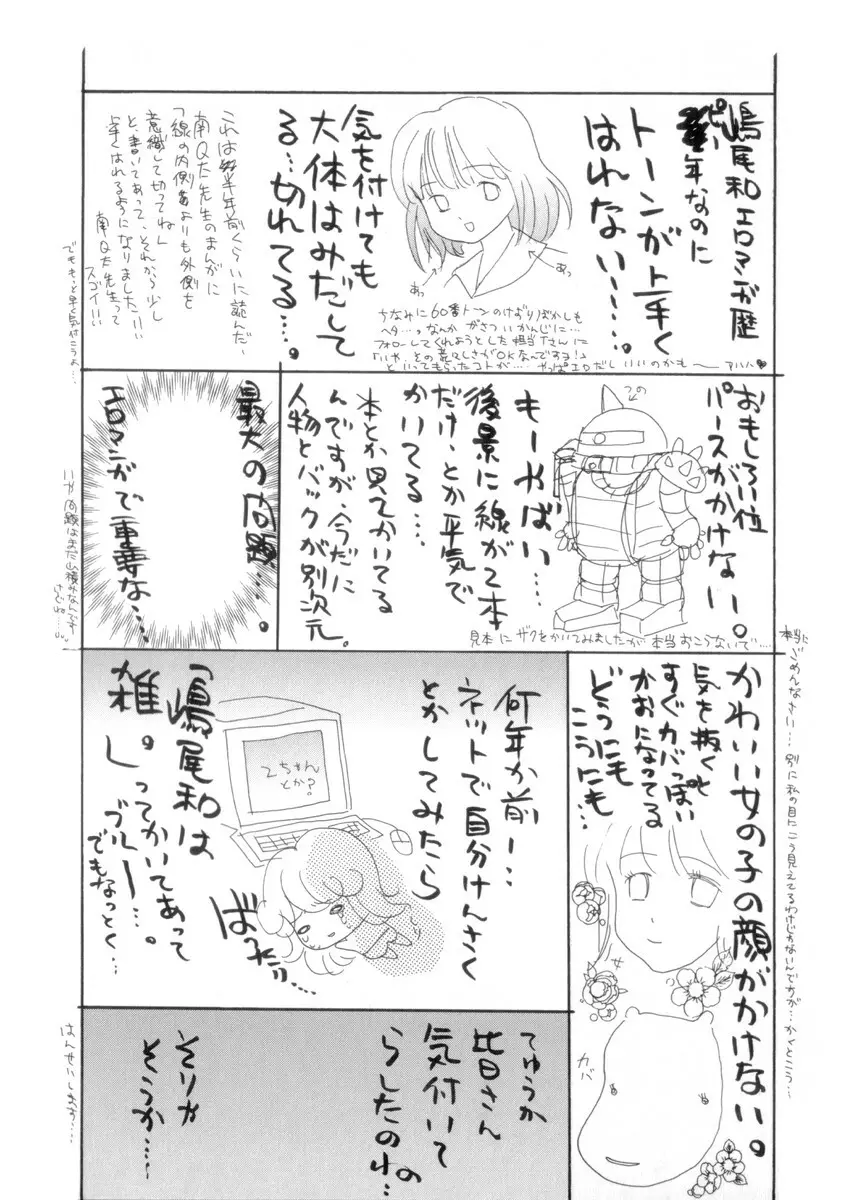 嶋尾和エロマンガ歴
ピー年なのに
トーンが上手く
はれない……。
気を付けても
大体はみだして
る…切れてる…。
あっ
あっ
これは半年前くらいに読んだ、
南Q太先生のまんがに
「線の内側よりも外側を
意識して切ってね」
と、書いてあって、それから少し
早くはれるようになりました!!!
南Q太先生って
スゴイ!!!
でももっと早く気付こうよ…
ちなみに60番トーンのけずりぼかしも
ヘタ…。なんか がさつい かんじに…
フォローしてくれようとした担当Tさんに
「いや、その荒々しさがOKなんですヨ!」
といってもらったコトが…… やっぱエロだし いいのかも ── アハハ♥
おもしろい位
パースがかけない。
つの
もーやばい……
後景に線が2本
だけ、とか平気で
かいてる…
本とか見てかいてる
んですが、今だに
人物とバックが別次元。
見本に ザクをかいてみましたが 本当おこらないで……
最大の問題…。
エロマンガで重要な…
いや問題はまだ山積みなんです
けどね…。
かわいい女の子の顔がかけない。
気を抜くと
すぐカバっぽい
かおになってる
どうにも
こうにも…
女
カバ
本当に
ごめんなさい… 別に私の目に こう見えてるわけじゃないんですが… かくとこう…
何年か前ー…
ネットで自分けんさく
とかしてみたら
2ちゃん
とか?
「嶋尾和は
雑。」ってかいてあって
ブルー…。
でもなっとく…
ばったり…
てゆうか
皆さん
気付いて
らしたのね…の
そりゃ
そうか……
はんせいします…